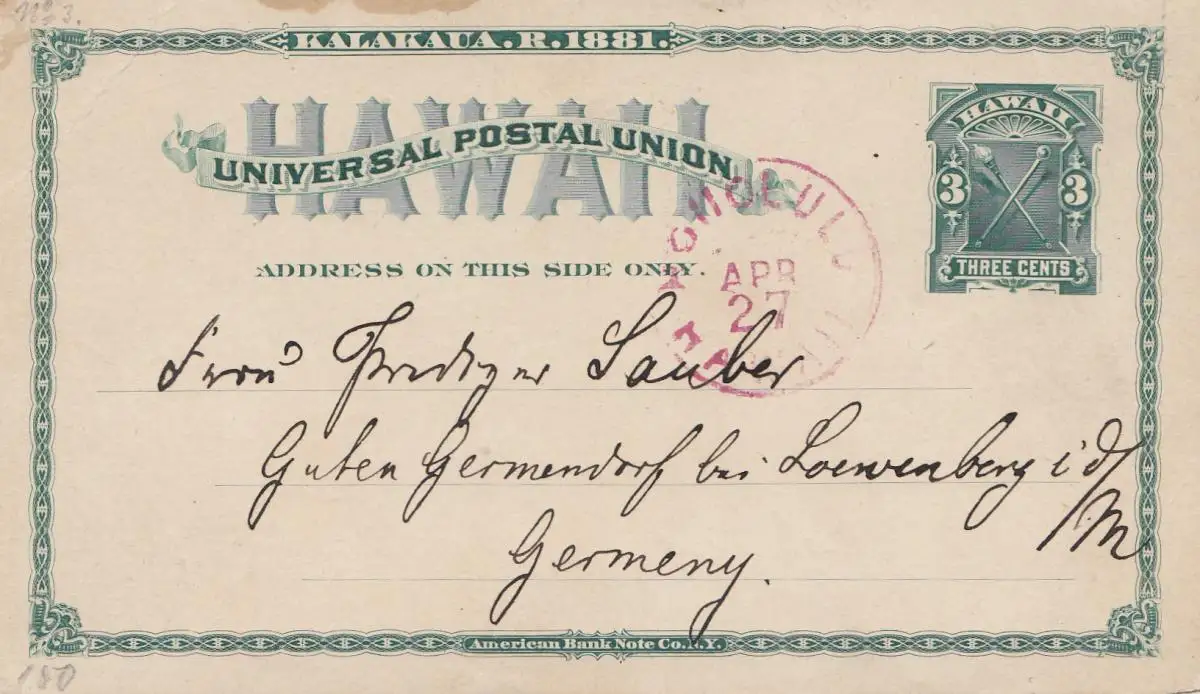 KALAKAUA.R.1881.
HAWAII
UNIVERSAL POSTAL UNION
ADDRESS ON THIS SIDE ONLY.
HAWAII
3 3
THREE CENTS
HONOLULU
APR
27
HAWAII
Frau Prediger Sauber
Guten Germendorf bei Loewenberg i d/
M
Germeny.
American Bank Note Co. N.Y.
180